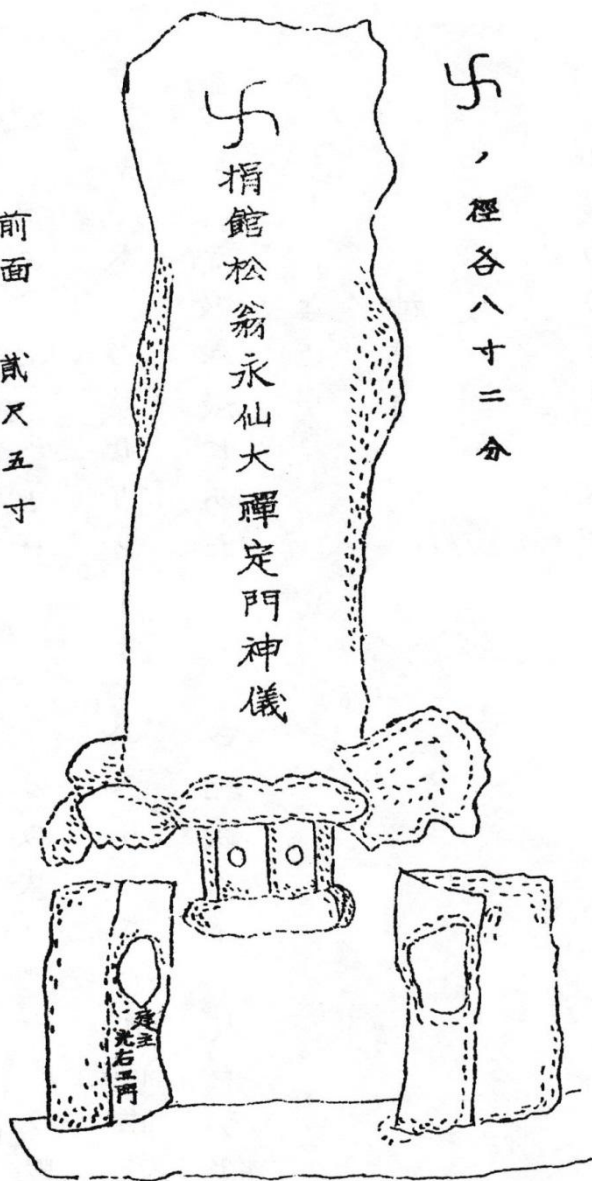 卐ノ徑各八寸二分
卐
捐館松翁永仙大禪定門神儀
前面 貳尺五寸
施主
光右エ門